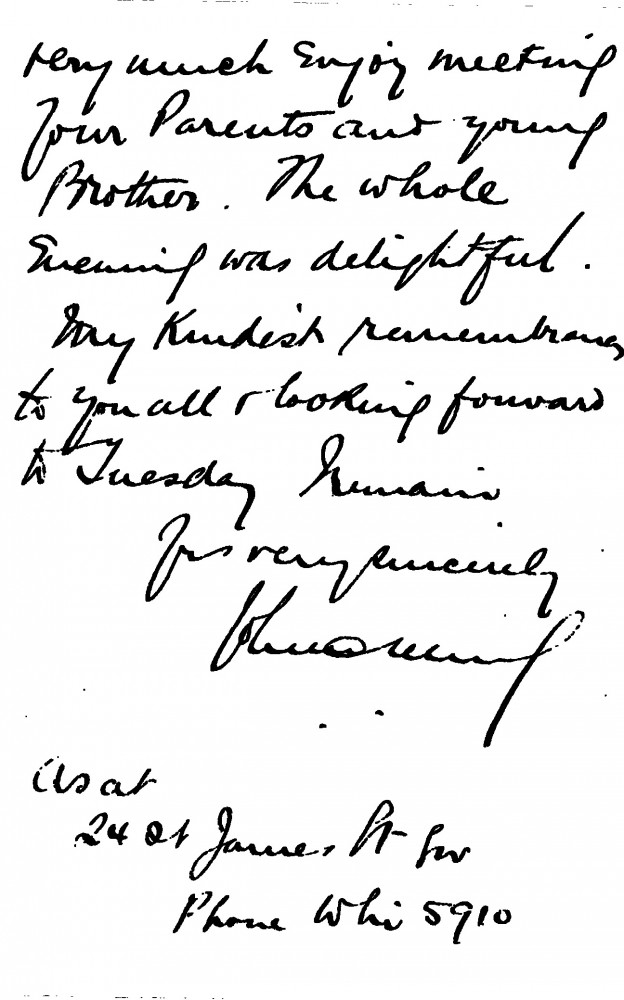 very much Enjoy meeting
your Parents and young
Brother. The whole
Evening was delightful.
My Kindest remembrances
to you all & looking forward
to Tuesday Iremain
Yrs very sincerely
John
As at
24 St James St SW
Phone Whi 5910